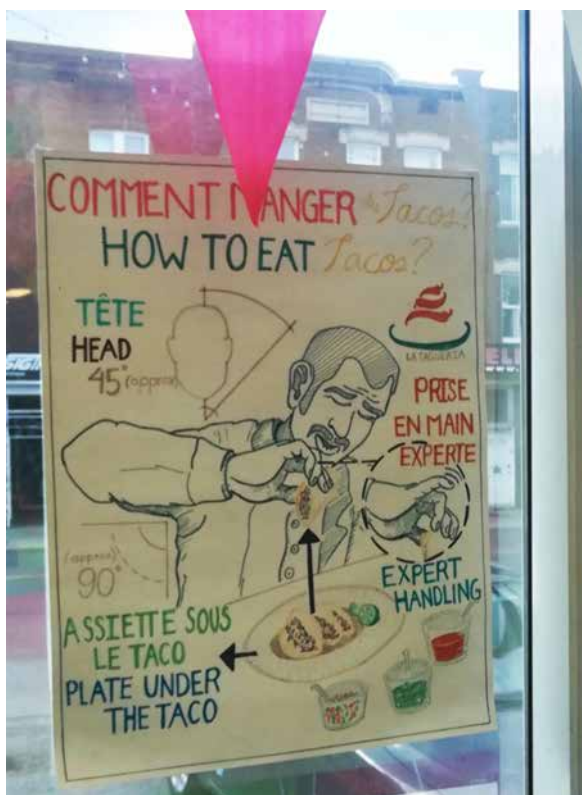 COMMENT MANGER des Tacos?
HOW TO EAT Tacos?
TÊTE
HEAD
45° (approx)
LA TAQUERIA
PRISE
EN MAIN
EXPERTE
(approx)
90°
EXPERT
HANDLING
ASSIETTE SOUS
LE TACO
PLATE UNDER
THE TACO